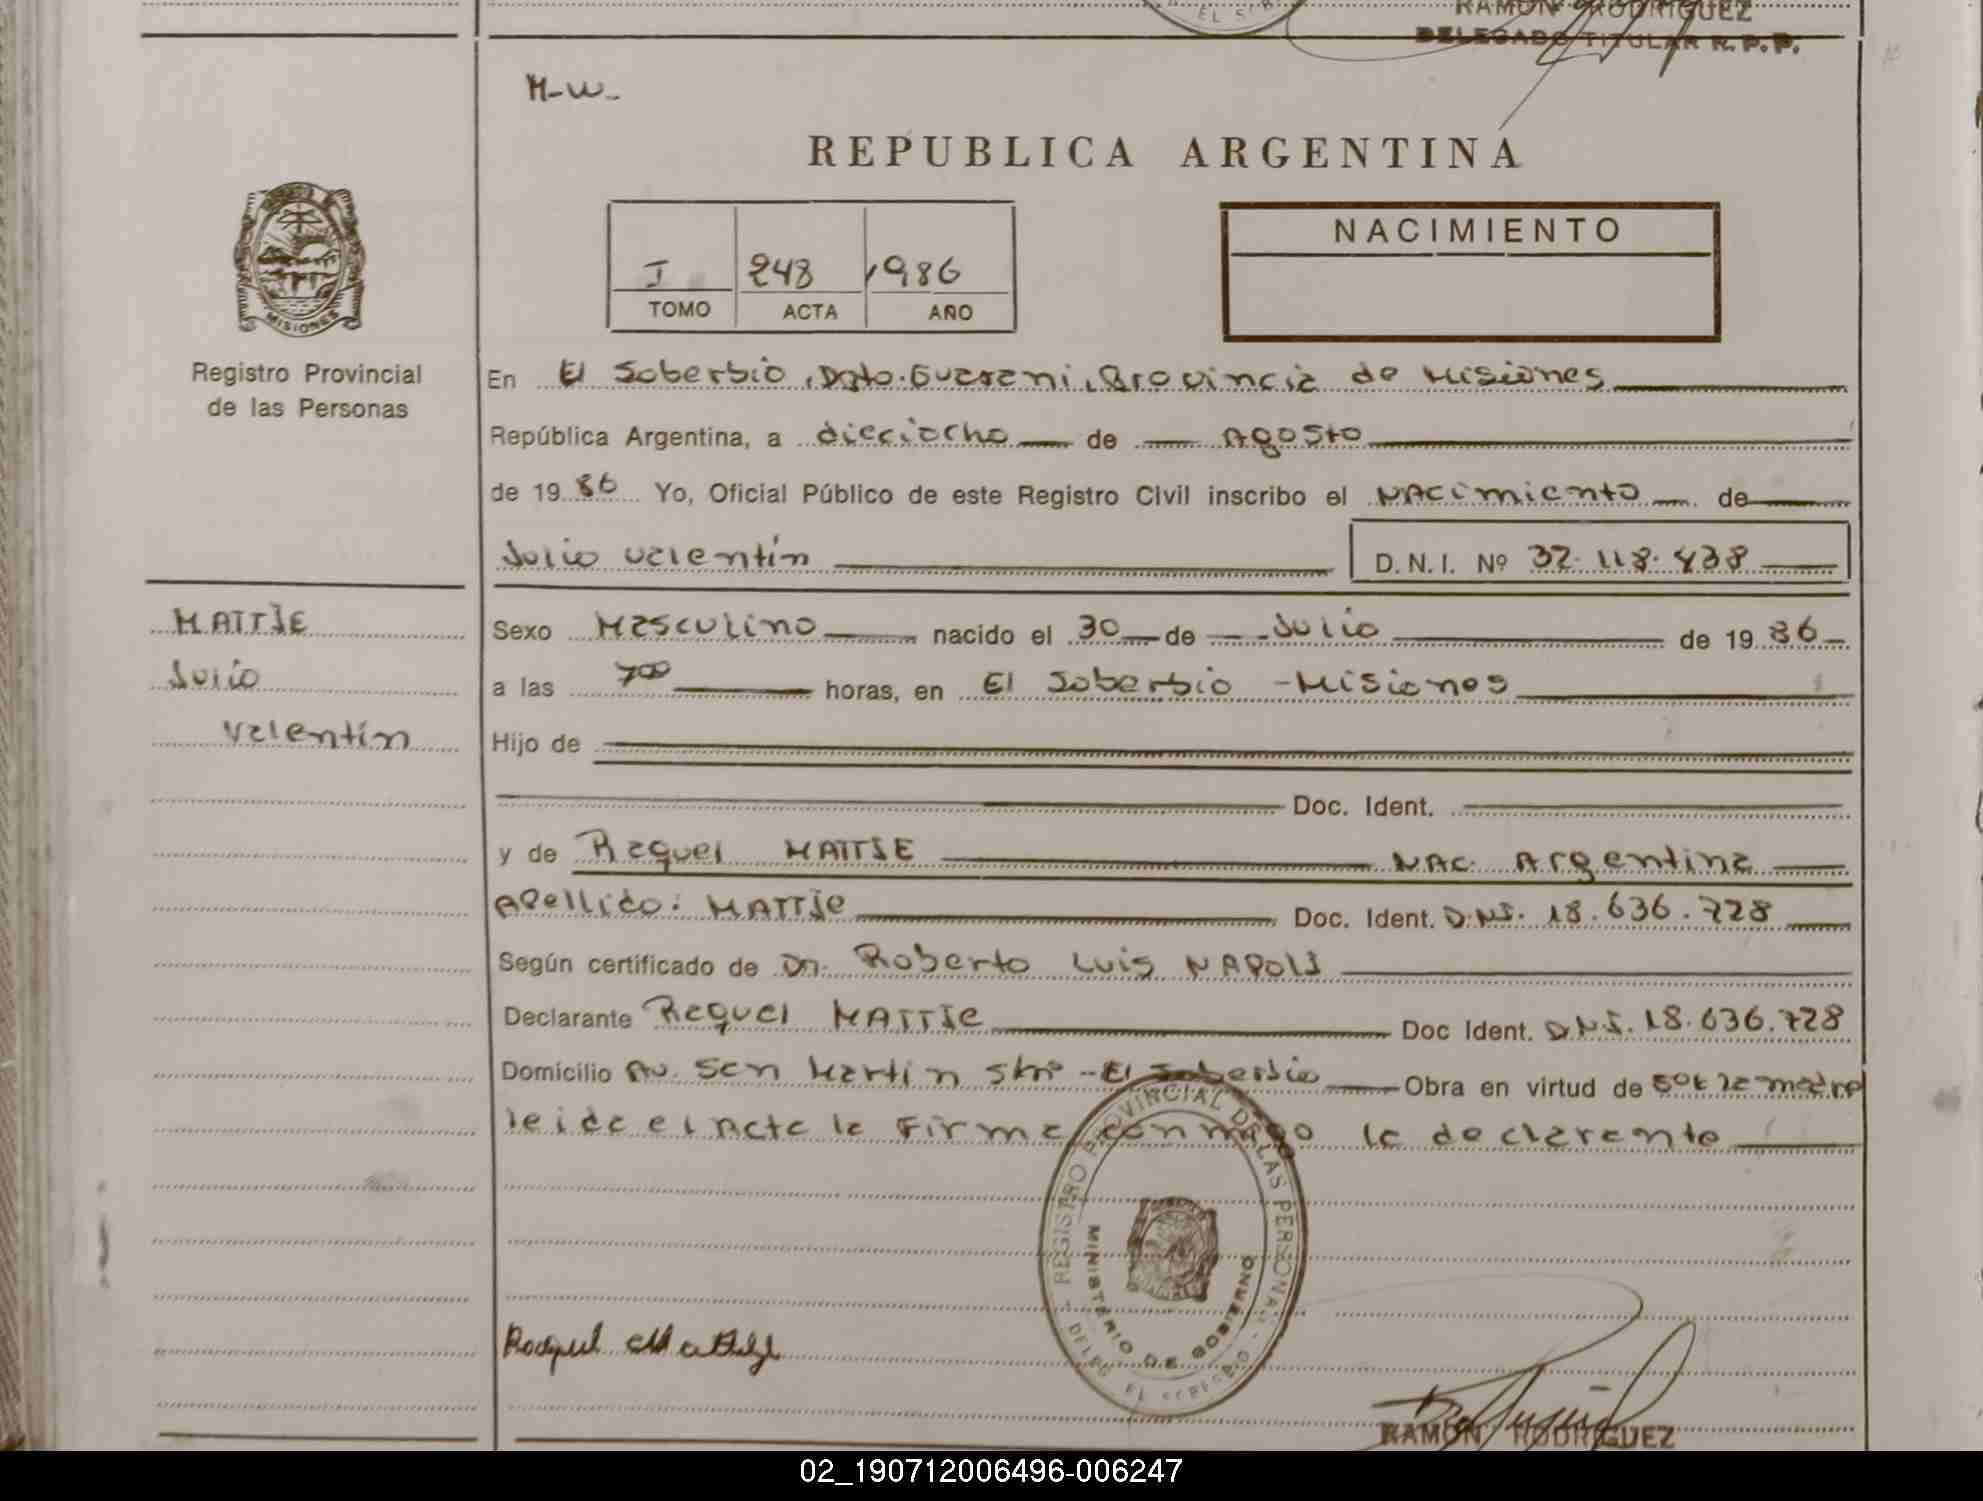 EL SOBE
RAMON RODRIGUEZ
DELEGADO TITULAR R.P.P.
M-W-
REPUBLICA ARGENTINA
NACIMIENTO
I 248 1986
TOMO ACTA AÑO
MISIONES
Registro Provincial
de las Personas
En El Soberbio, Dpto. Guarani, Provincia de Misiones
República Argentina, a dieciocho de Agosto
de 1986 Yo, Oficial Público de este Registro Civil inscribo el NACimiento de
Julio Valentín D.N.I. Nº 32.118.438
MATTJE
Julio
Valentín
Sexo Masculino nacido el 30 de Julio de 1986
a las 700 horas, en El Soberbio - Misiones
Hijo de
Doc. Ident.
y de Raquel MATTJE NAC. Argentina
Apellido: MATTJE Doc. Ident. D.N.I. 18.636.728
Según certificado de Dr. Roberto Luis NAPOLI
Declarante Raquel MATTJE Doc Ident. D.N.I. 18.636.728
Domicilio Av. San Martin - El Soberbio Obra en virtud de la madre
leida el Acta la Firma conmigo la declarante
REGISTRO PROVINCIAL DE LAS PERSONAS
MINISTERIO DE GOBIERNO
DELEG. EL SOBERBIO
Raquel Mattje
RAMON RODRIGUEZ
02_190712006496-006247